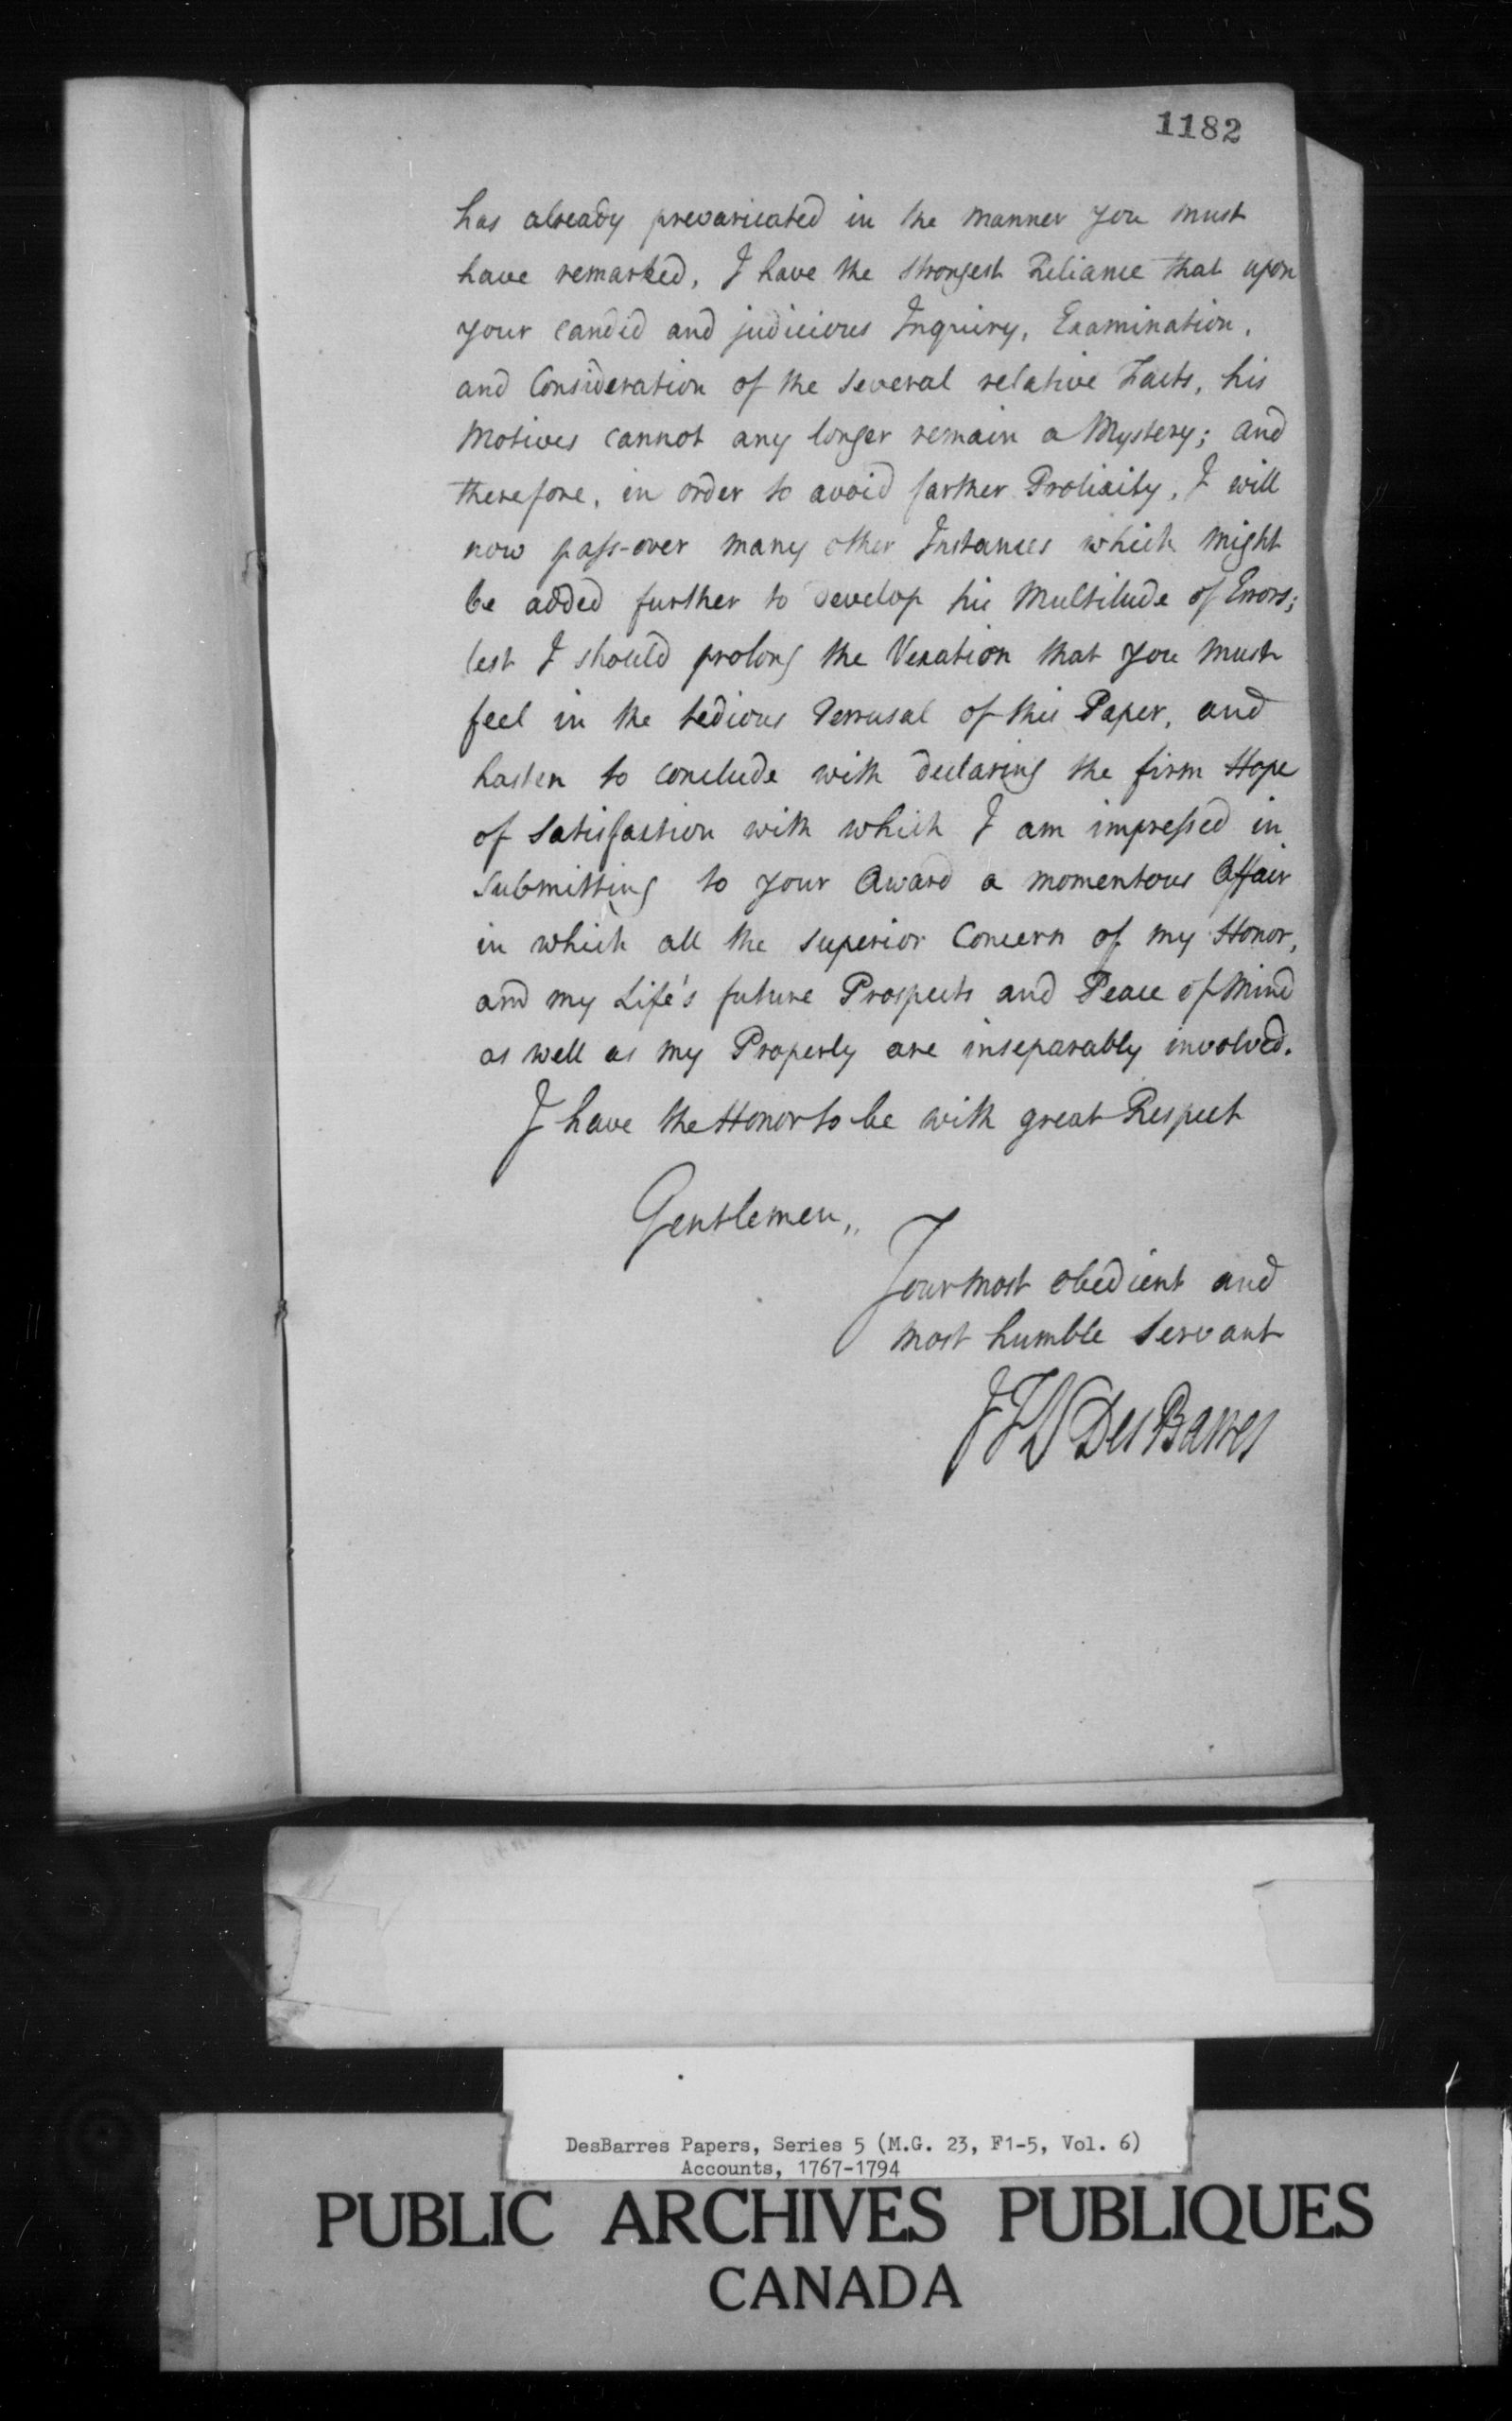 1182
has already prevaricated in the manner you must
have remarked, I have the strongest Reliance that upon
your candid and judicious Inquiry, Examination,
and Consideration of the several relative Facts, his
Motives cannot any longer remain a Mystery; and
therefore, in order to avoid farther Prolixity, I will
now pass-over many other Instances which might
be added further to develop his Multitude of Errors;
lest I should prolong the Vexation that you must
feel in the tedious Perrusal of this Paper, and
hasten to conclude with declaring the firm Hope
of Satisfaction with which I am impressed in
submitting to your Award a momentous Affair
in which all the superior Concern of my Honor,
and my Life's future Prospects and Peace of Mind
as well as my Property are inseparably involved.
I have the Honor to be with great Respect
Gentlemen,,
Your most obedient and
most humble Servant
JFW DesBarres
DesBarres Papers, Series 5 (M.G. 23, F1-5, Vol. 6)
Accounts, 1767-1794
PUBLIC ARCHIVES PUBLIQUES
CANADA